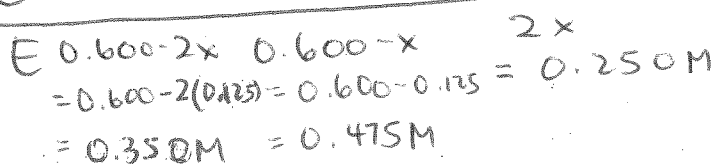 E 0.600-2x 0.600-x 2x
=0.600-2(0.125)= 0.600-0.125 = 0.250M
= 0.350M = 0.475M